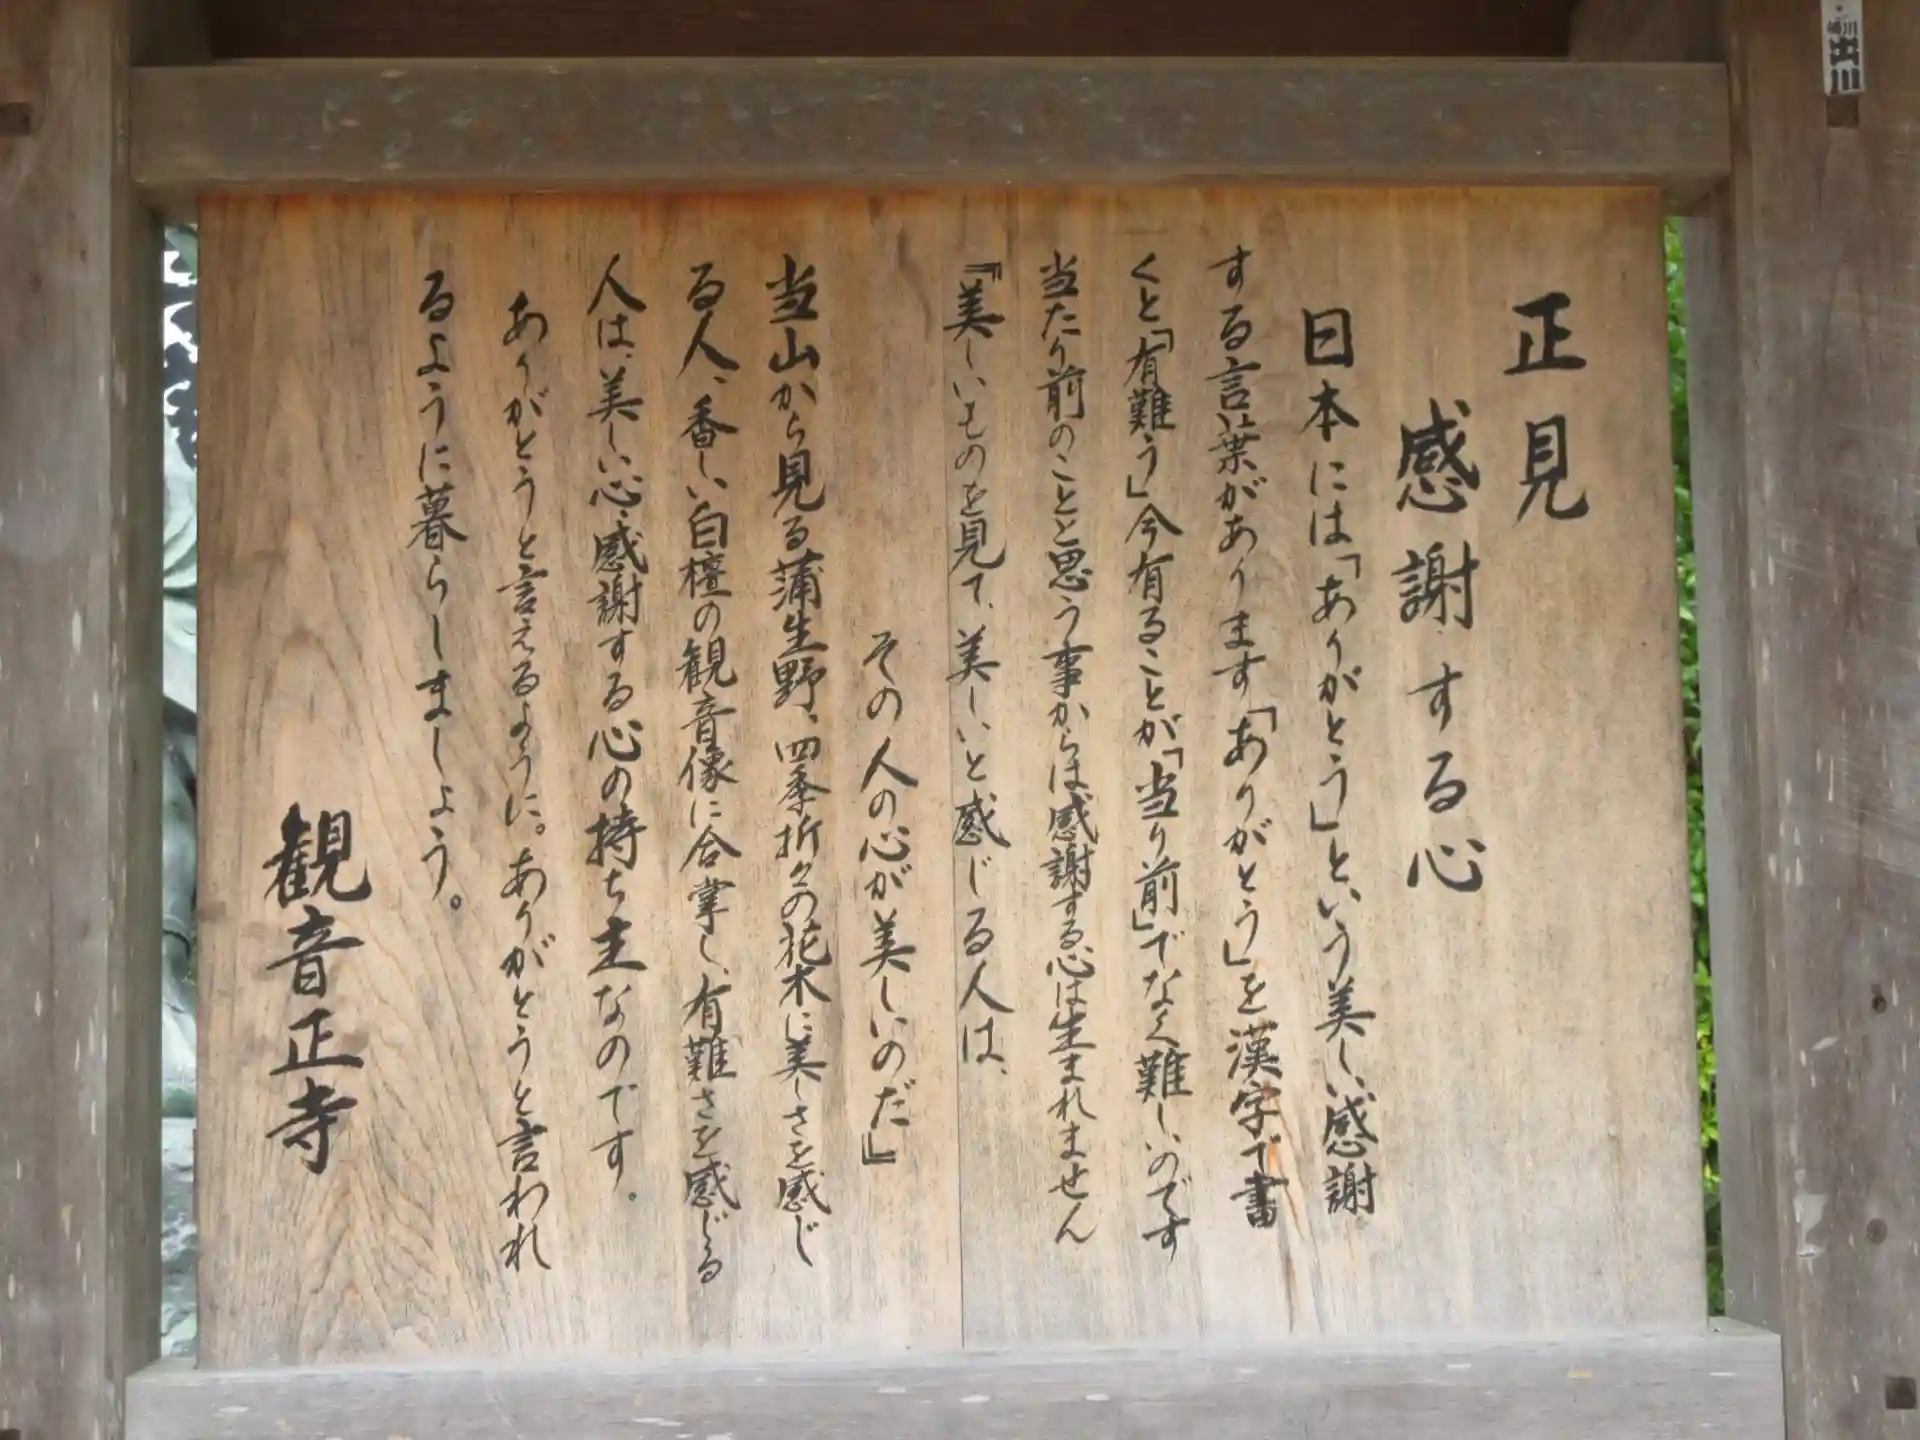 正見
感謝する心
日本には「ありがとう」という美しい感謝
する言葉があります「ありがとう」を漢字で書
くと「有難う」今有ることが「当り前」でなく難しいのです
当たり前のことと思う事からは感謝する心は生まれません
『美しいものを見て、美しいと感じる人は、
その人の心が美しいのだ』
当山から見る蒲生野、四季折々の花木に美しさを感じ
る人、香しい白檀の観音像に合掌し、有難さを感じる
人は、美しい心、感謝する心の持ち主なのです。
ありがとうと言えるように。ありがとうと言われ
るように暮らしましょう。
観音正寺